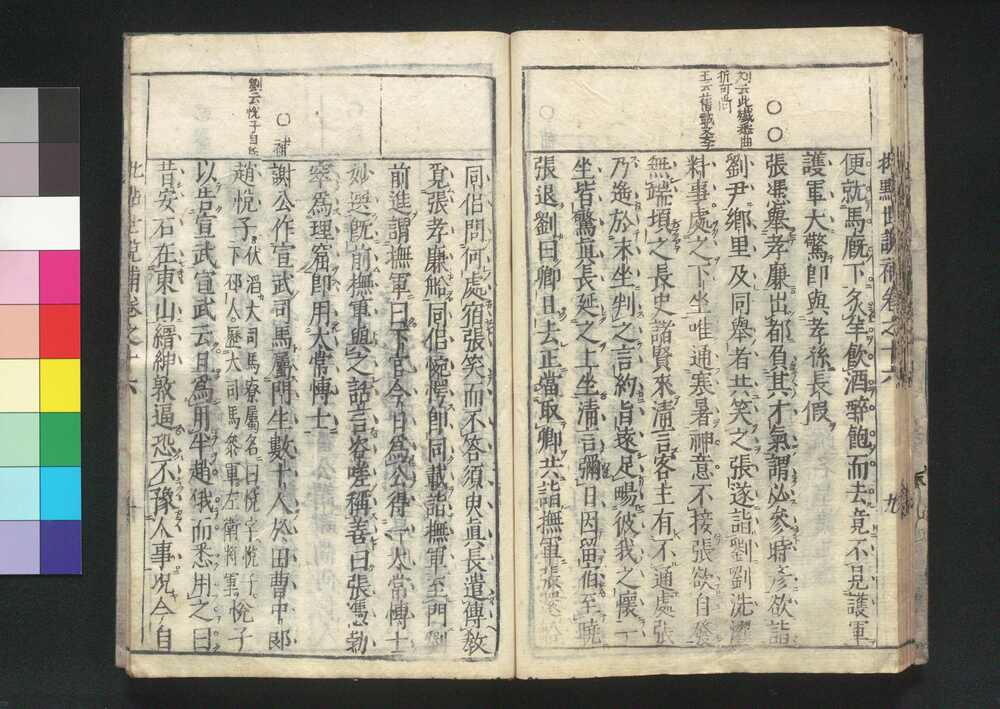 便就馬廐下炙羊飲酒醉飽而去竟不見護軍
護軍大驚即與孝孫長假
張憑舉孝廉出都負其才氣謂必參時彥欲詣
劉尹鄉里及同舉者共笑之張遂詣劉劉洗濯
料事處之下坐唯通寒暑神意不接張欲自發
無端頃之長史諸賢來清言客主有不通處張
乃遙於末坐判之言約旨遠足暢彼我之懷一
坐皆驚眞長延之上坐清言彌日因留宿至曉
張退劉曰卿且去正當取卿共詣撫軍張還船
同侶問何處宿張笑而不答須臾眞長遣傳教
覓張孝廉船同侶惋愕即同載詣撫軍至門劉
前進謂撫軍曰下官今日爲公得一太常博士
妙選旣前撫軍與之話言咨嗟稱善曰張憑勃
窣爲理窟即用太常博士
○補
謝公作宣武司馬屬門生數十人於田曹中郎
趙悅子伏滔大司馬寮屬名曰悅字悅子
下邳人歷大司馬參軍左衛將軍悅子
以告宣武宣武云且爲用半趙俄而悉用之曰
昔安石在東山縉紳敦逼恐不豫人事況今自